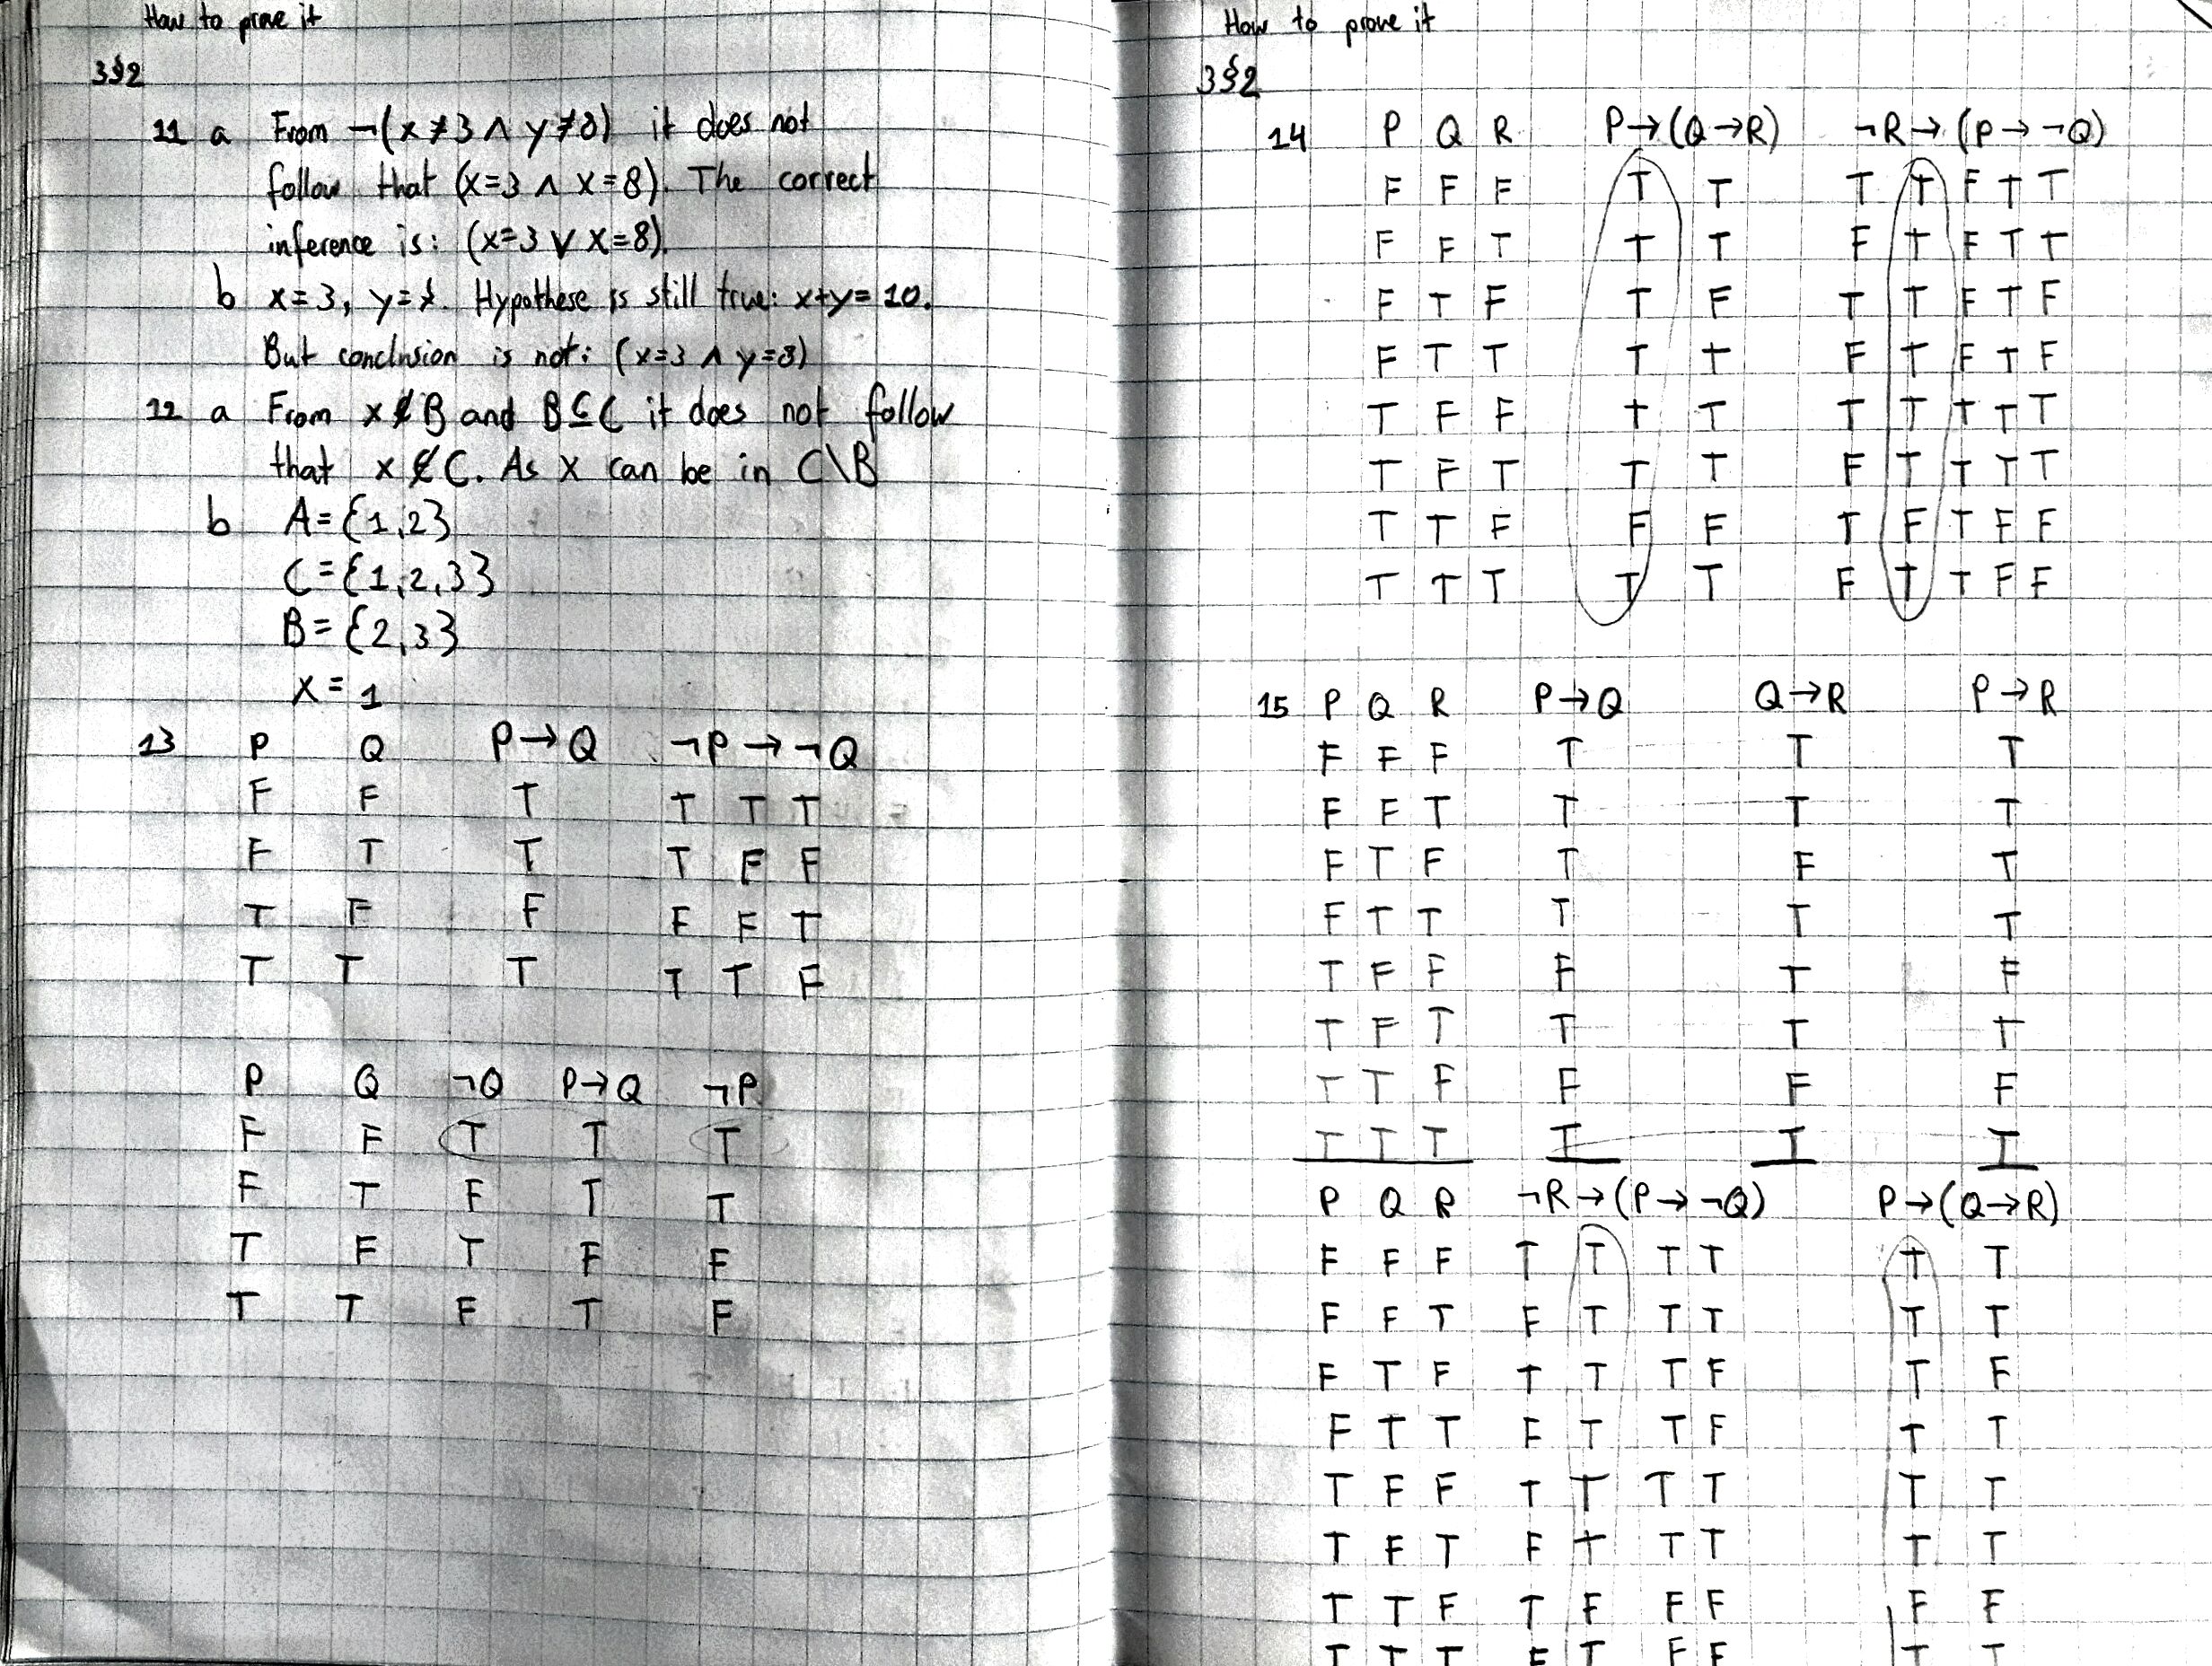 How to prove it
3§2
11 a From ¬(x≠3 ∧ y≠8) it does not
follow that (x=3 ∧ x=8). The correct
inference is: (x=3 ∨ x=8).
b x=3, y=7. Hypothese is still true: x+y=10.
But conclusion is not: (x=3 ∧ y=8)
12 a From x∉B and B⊆C it does not follow
that x∉C. As x can be in C\B
b A={1,2}
C={1,2,3}
B={2,3}
x=1
13 P Q P→Q ¬P→¬Q
F F T T T T
F T T T F F
T F F F F T
T T T T T F
P Q ¬Q P→Q ¬P
F F T T T
F T F T T
T F T F F
T T F T F
How to prove it
3§2
14 P Q R P→(Q→R) ¬R→(P→¬Q)
F F F T T T T F T T
F F T T T F T F T T
F T F T F T T F T F
F T T T T F T F T F
T F F T T T T T T T
T F T T T F T T T T
T T F F F T F T F F
T T T T T F T T F F
15 P Q R P→Q Q→R P→R
F F F T T T
F F T T T T
F T F T F T
F T T T T T
T F F F T F
T F T T T T
T T F F F F
T T T T T T
P Q R ¬R→(P→¬Q) P→(Q→R)
F F F T T T T T T
F F T F T T T T T
F T F T T T F T F
F T T F T T F T T
T F F T T T T T T
T F T F T T T T T
T T F T F F F F F
T T T F T F F T T